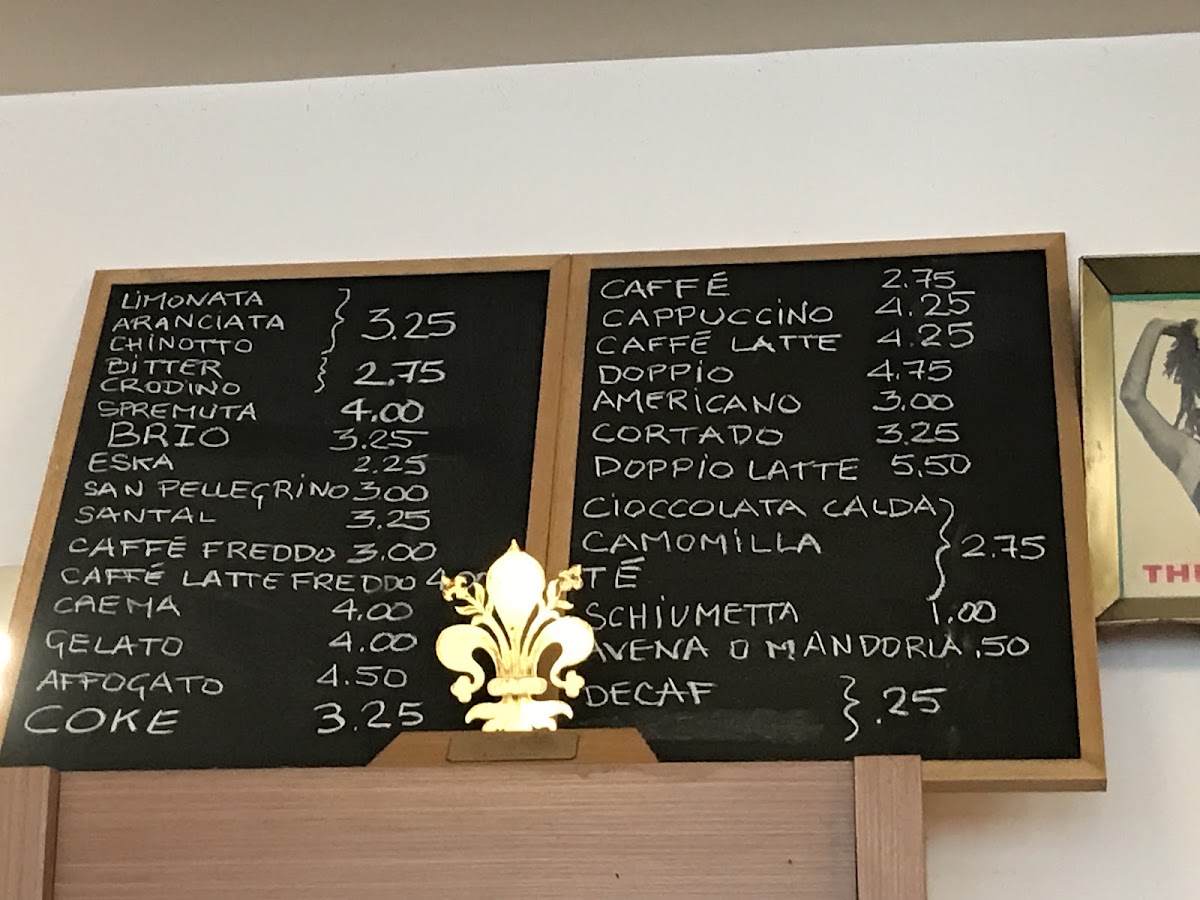 LIMONATA
ARANCIATA
CHINOTTO
3.25
BITTER
CRODINO
2.75
SPREMUTA 4.00
BRIO 3.25
ESKA 2.25
SAN PELLEGRINO 3.00
SANTAL 3.25
CAFFÉ FREDDO 3.00
CAFFÉ LATTE FREDDO
CREMA 4.00
GELATO 4.00
AFFOGATO 4.50
COKE 3.25
CAFFÉ 2.75
CAPPUCCINO 4.25
CAFFÉ LATTE 4.25
DOPPIO 4.75
AMERICANO 3.00
CORTADO 3.25
DOPPIO LATTE 5.50
CIOCCOLATA CALDA
CAMOMILLA
TÉ
2.75
SCHIUMETTA 1.00
AVENA O MANDORLA .50
DECAF .25